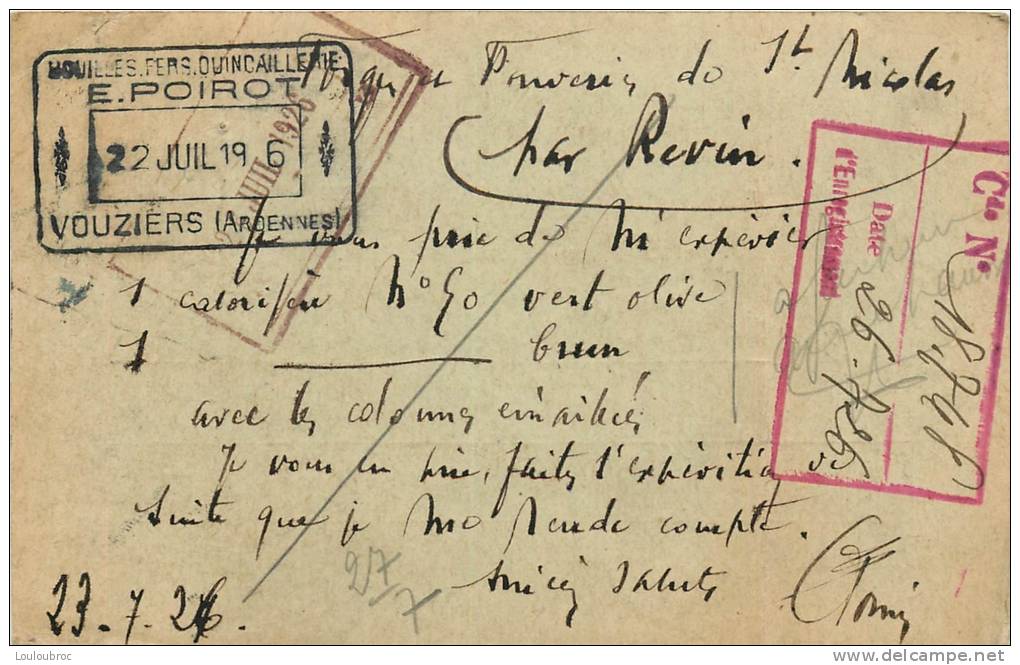 HOUILLES.FERS.QUINCAILLERIE
E. POIROT
22 JUIL 19 6
VOUZIERS (ARDENNES)
JUIL 1926
Forges et Fonderies de St Nicolas
par Revin.
Je vous prie de m'expédier
1 calorifère N° 50 vert olive
1 brun
avec les colonnes émaillées
Je vous en prie, faites l'expédition de
suite que je me rende compte.
Sincères saluts
23.7.26.
27/7
Cde N°
Date
d'Enregistrement
26.7.26
Louloubroc
delcampe.net